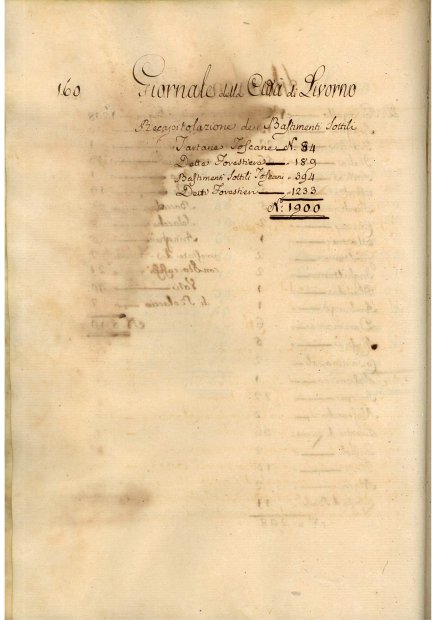 160 Giornale della Città di Livorno
Recapitolazione de Bastimenti Sottili
Tartane Toscane N. 84
Dette Forestiere 189
Bastimenti Sottili Toscani 394
Detti Forestieri 1233
N. 1900